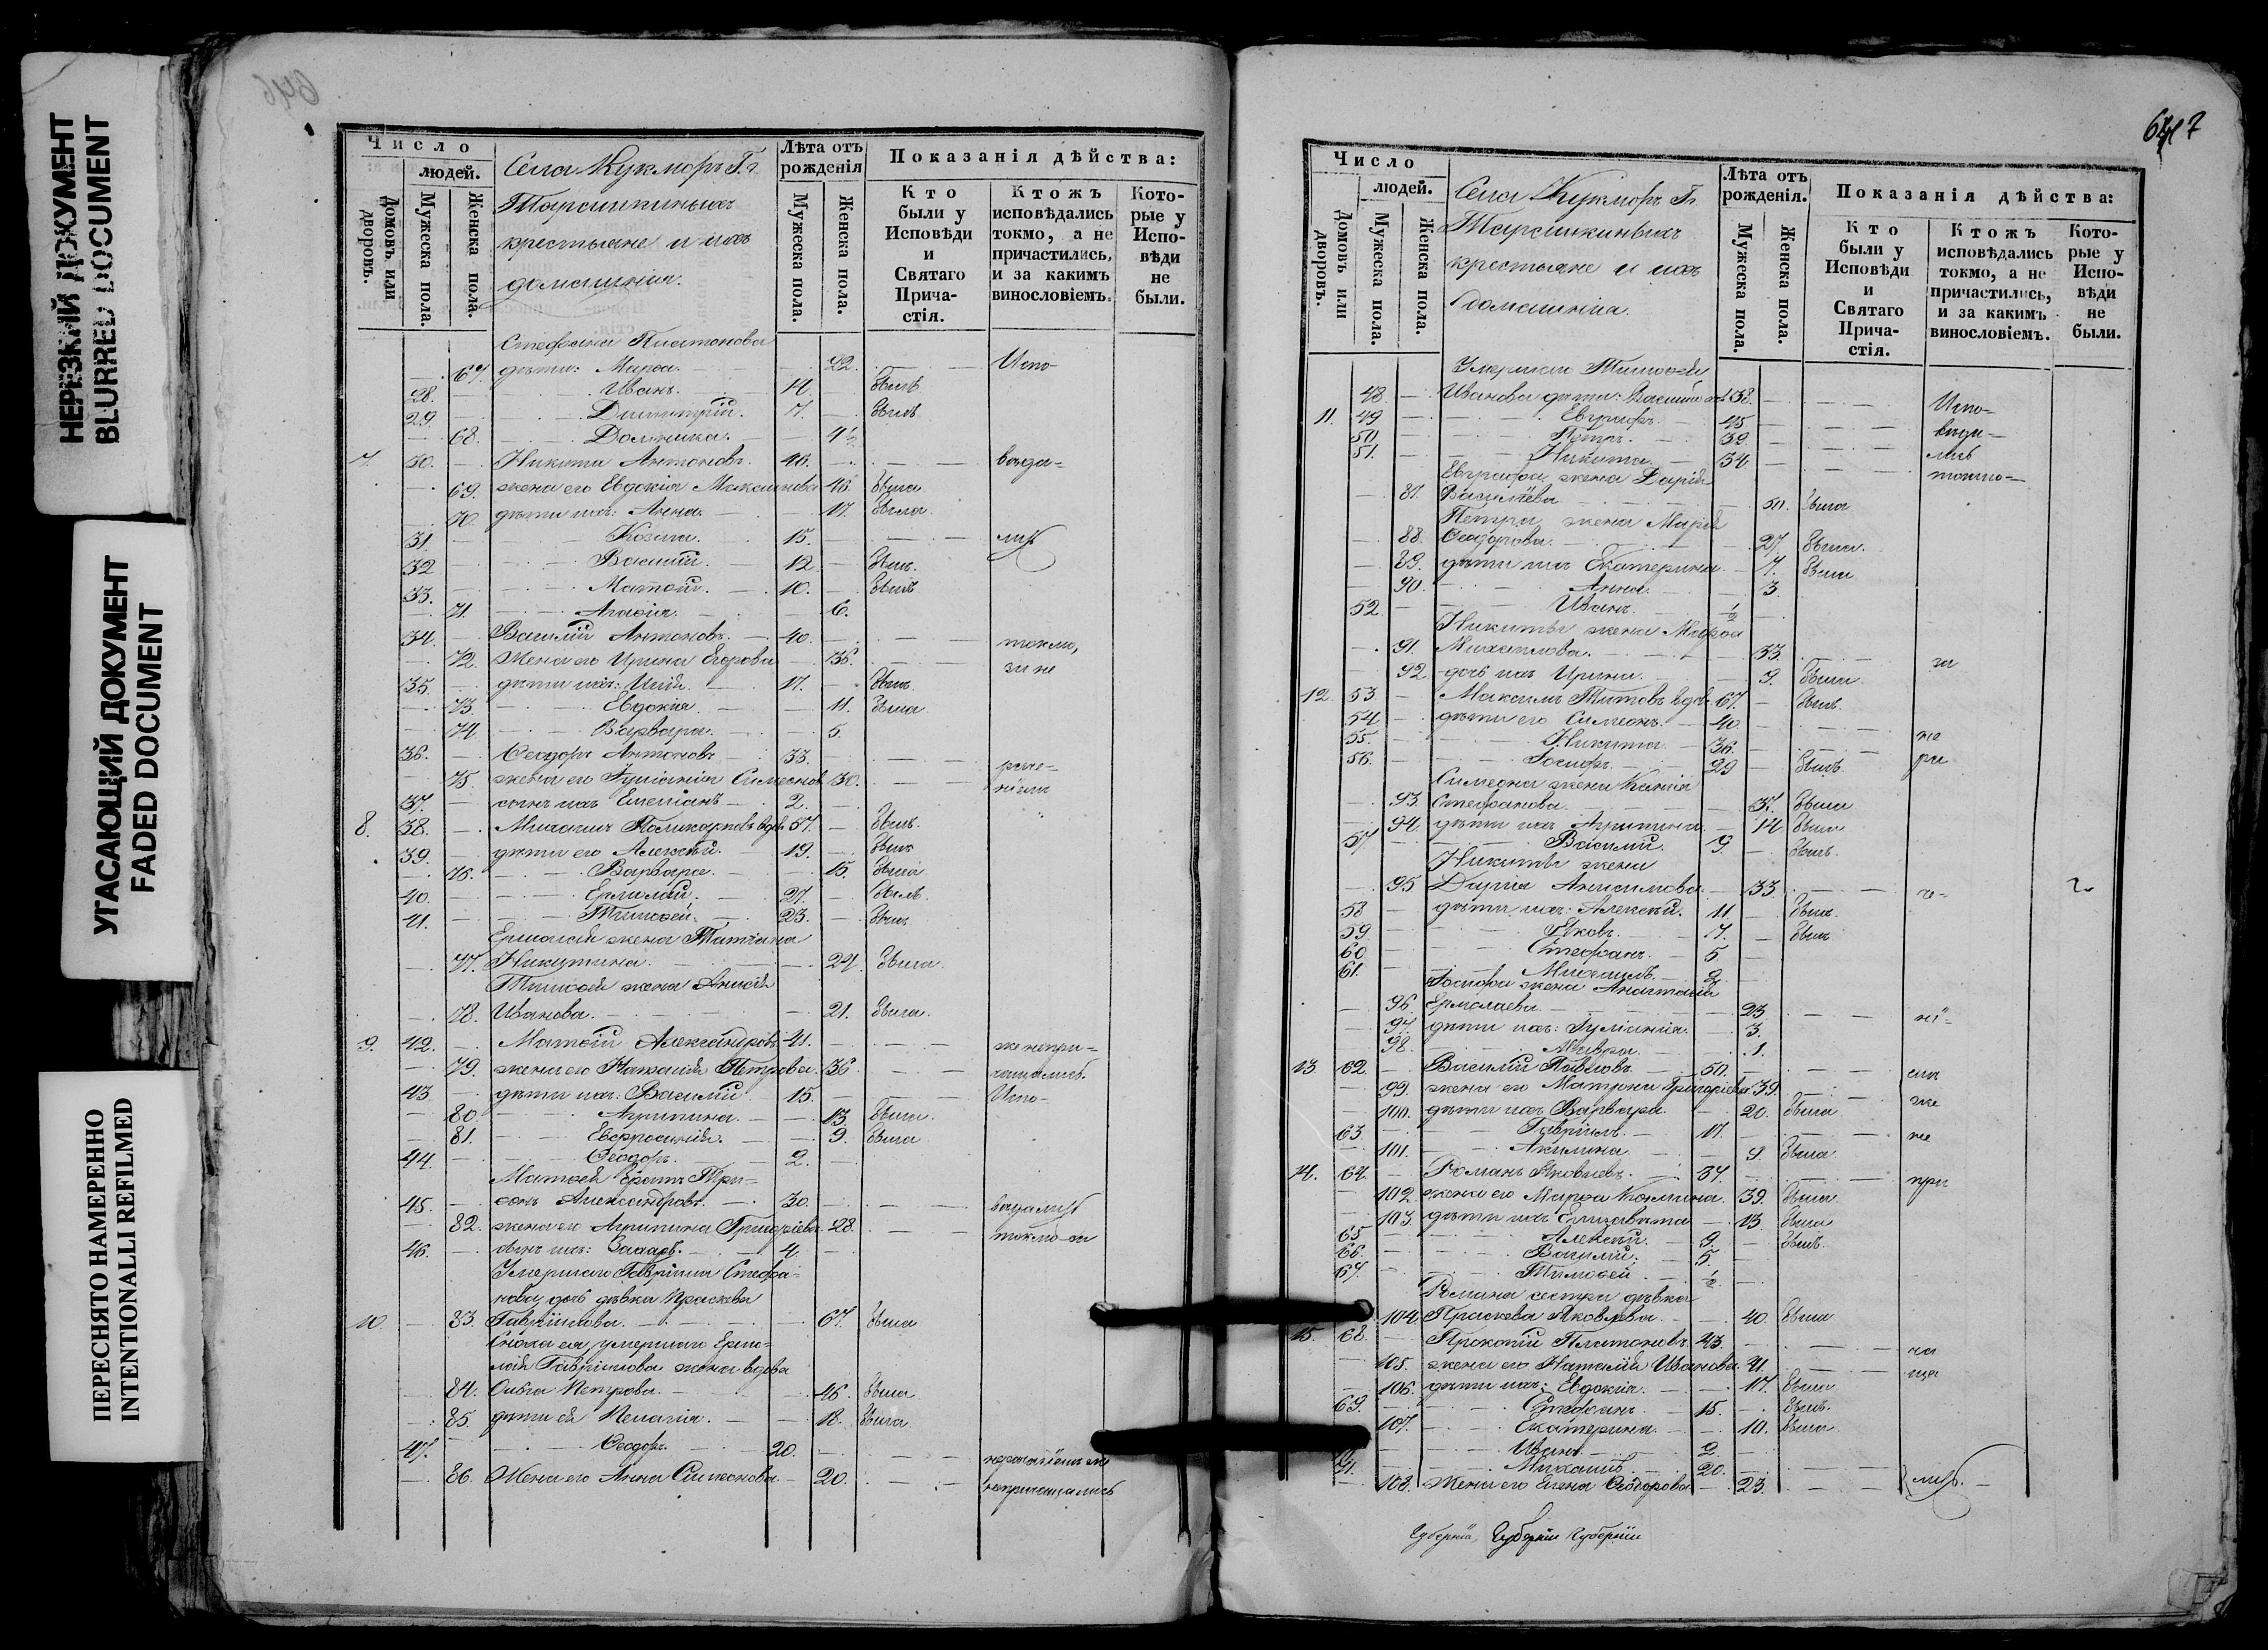 НЕРЕЗКИЙ ДОКУМЕНТ
BLURRED DOCUMENT
УГАСАЮЩИЙ ДОКУМЕНТ
FADED DOCUMENT
ПЕРЕСНЯТО НАМЕРЕННО
INTENTIONALLI REFILMED
646
Число
людей.
Домовъ или дворовъ.
Мужеска пола.
Женска пола.
Села Кукморъ Гг.
крестьяне и ихъ
домашнія.
Лѣта отъ рожденія
Мужеска пола.
Женска пола.
Показанія дѣйства:
Кто были у Исповѣди и Святаго Прича-стія.
Ктожъ исповѣдались токмо, а не причастились, и за какимъ винословіемъ.
Кото-рые у Испо-вѣди не были.
Стефана Платонова
67. дѣти: Марѳа. 22. Испо-
28. Иванъ. 14. былъ
29. Димитрій. 7. былъ
68. Домника.
7. 30. Никита Антоновъ. 46. вѣда-
69. жена его Евдокія Максимова 46. была
70. дѣти ихъ: Анна. 17. была
31. Козма. 15. лись
32 Василій. 12 былъ.
33. Матѳій. 10. былъ
71. Агаѳія. 6.
34. Василій Антоновъ. 40. токмо,
72. Жена его Ирина Егорова 36. за не
35. дѣти ихъ: Илія. 17. былъ.
73. Евдокія 11. была
74 Варвара. 5.
36. Ѳеодоръ Антоновъ 33.
75. жена его Іуліанія Симеонов. 30.
37. сынъ ихъ Емеліанъ 2.
8. 38. Михаилъ Поликарповъ вдов. 57. былъ.
39. дѣти его Алексѣй. 19. былъ
76. Варвара. 15. была
40. Ермолай. 27. былъ.
41. Тимоѳей. 23. былъ
Ермолая жена Татіана
77. Никитина. 24. была.
Тимоѳея жена
78. Иванова. 21. была.
9. 42. Матѳій Александровъ 41.
79. жена его Наталія Петрова. 36
43 дѣти ихъ: Василій 15. Испо-
80 Агрипина. 13. была.
81. Евфросинія. 9. была
44. Ѳеодоръ. 2.
Матѳея братъ Три-
45. фонъ Александровъ. 30. вѣдались
82. жена его Агрипина Григорьева 28. токмо
46. сынъ ихъ: Захаръ. 4
Умершаго Гавріила Стефа-
нова дочь дѣвка Праскева
10. 83. Гавріилова. 67. была
Сноха ея, умершаго Ермо-
лая Гавріилова жена вдова
84. Ольга Петрова. 46. была
85. дѣти ея Пелагія. 18. была
47. Ѳеодоръ. 20.
86. Жена его Анна Симеонова. 20. непричащались
647
Число
людей.
Домовъ или дворовъ.
Мужеска пола.
Женска пола.
Села Кукморъ Гг.
крестьяне и ихъ
домашнія.
Лѣта отъ рожденія.
Мужеска пола.
Женска пола.
Показанія дѣйства:
Кто были у Исповѣди и Святаго Прича-стія.
Ктожъ исповѣдались токмо, а не причастились, и за какимъ винословіемъ.
Кото-рые у Испо-вѣди не были.
Умершаго Тимоѳея
48. Иванова дѣти: Василій 38. Испо-
11. 49 Евграфъ. 45 вѣда-
50 Петръ. 39. лись
51. Никита. 34. токмо
Евграфа жена Дарія
87. Васильева 50. была
Петра жена Марія
88. Ѳеодорова. 27. была.
89. дѣти ихъ Екатерина 7. была
90. Анна 3.
52 Иванъ. ½
Никиты жена Марѳа
91. Михаилова. 33. за
92. дочь ихъ Ирина. 9. была.
12. 53 Максимъ Титовъ вдов. 67. былъ.
54 дѣти его Симеонъ. 40.
55. Никита 36.
56. Іосифъ. 29 былъ
Симеона жена Ксенія
93. Стефанова. 37. была
94. дѣти ихъ Агрипина 14 была
57 Василій. 9. былъ.
Никиты жена
95 Дарія Анисимова. 33.
58 дѣти ихъ: Алексѣй. 11. былъ.
59. Яковъ. 7. былъ
60. Стефанъ. 5
61. Михаилъ. 2
Іосифа жена Анастасія
96. Ермолаева. 23
97. дѣти ихъ: Іуліанія. 3.
98. Мавра. 1.
13 62 Василій Павловъ. 50.
99. жена его Матрона Григорьева 39. же
100. дѣти ихъ Варвара. 20. была
63. Гавріилъ. 17. не
101. Акилина. 9. была
14. 64. Романъ Яковлевъ. 37. при
102. жена его Марѳа Козмина. 39. была
103. дѣти ихъ Елизавета 13. была
65 Алексѣй. 9. былъ.
66. Василій. 5.
67. Тимоѳей. ½
Романа сестра дѣвка
104. Праскева Яковлева. 40. была
15. 68. Прокопій Платоновъ. 43. ча
105. жена его Наталія Иванова. 41. ща
106. дѣти ихъ: Евдокія. 17. была
69. Стефанъ. 15. былъ.
107. Екатерина. 10. была
Иванъ 2
71. Михаилъ 20.
108. Жена его Елена Ѳеодорова 23. лись.
Губернія, Губерніи Губерніи